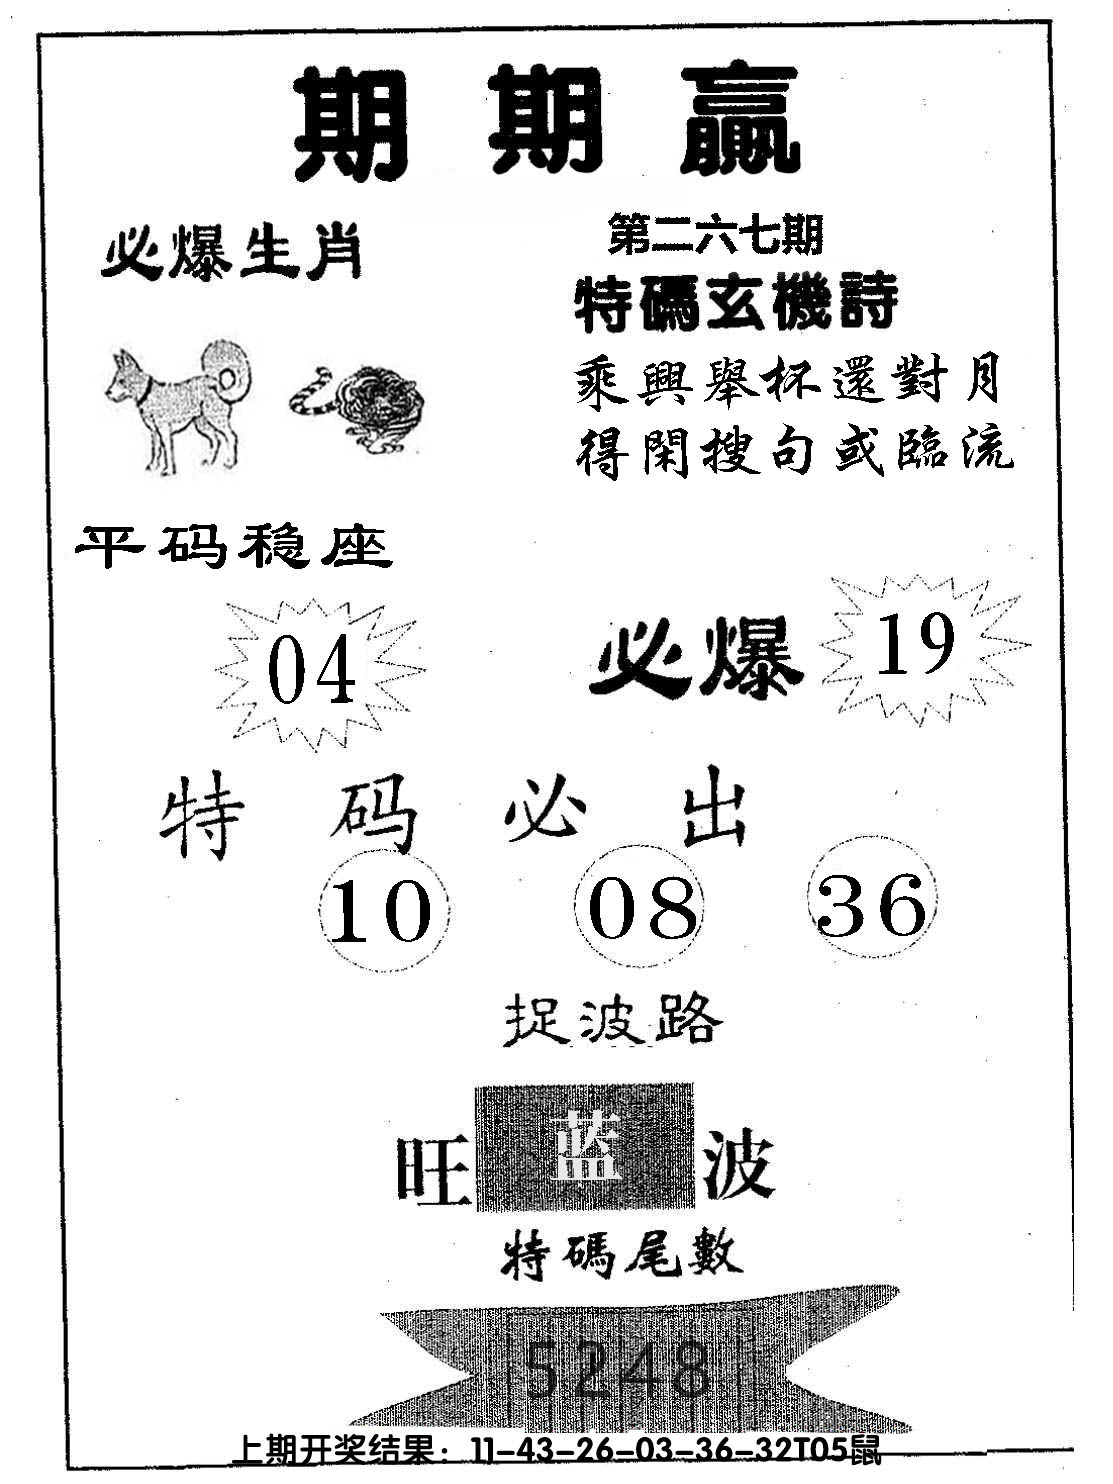 期期赢
必爆生肖
第二六七期
特碼玄機詩
乘興舉杯還對月
得閑搜句或臨流
平码稳座
04
必爆
19
特码必出
10 08 36
捉波路
旺 蓝 波
特碼尾數
5248
上期开奖结果：11-43-26-03-36-32T05鼠